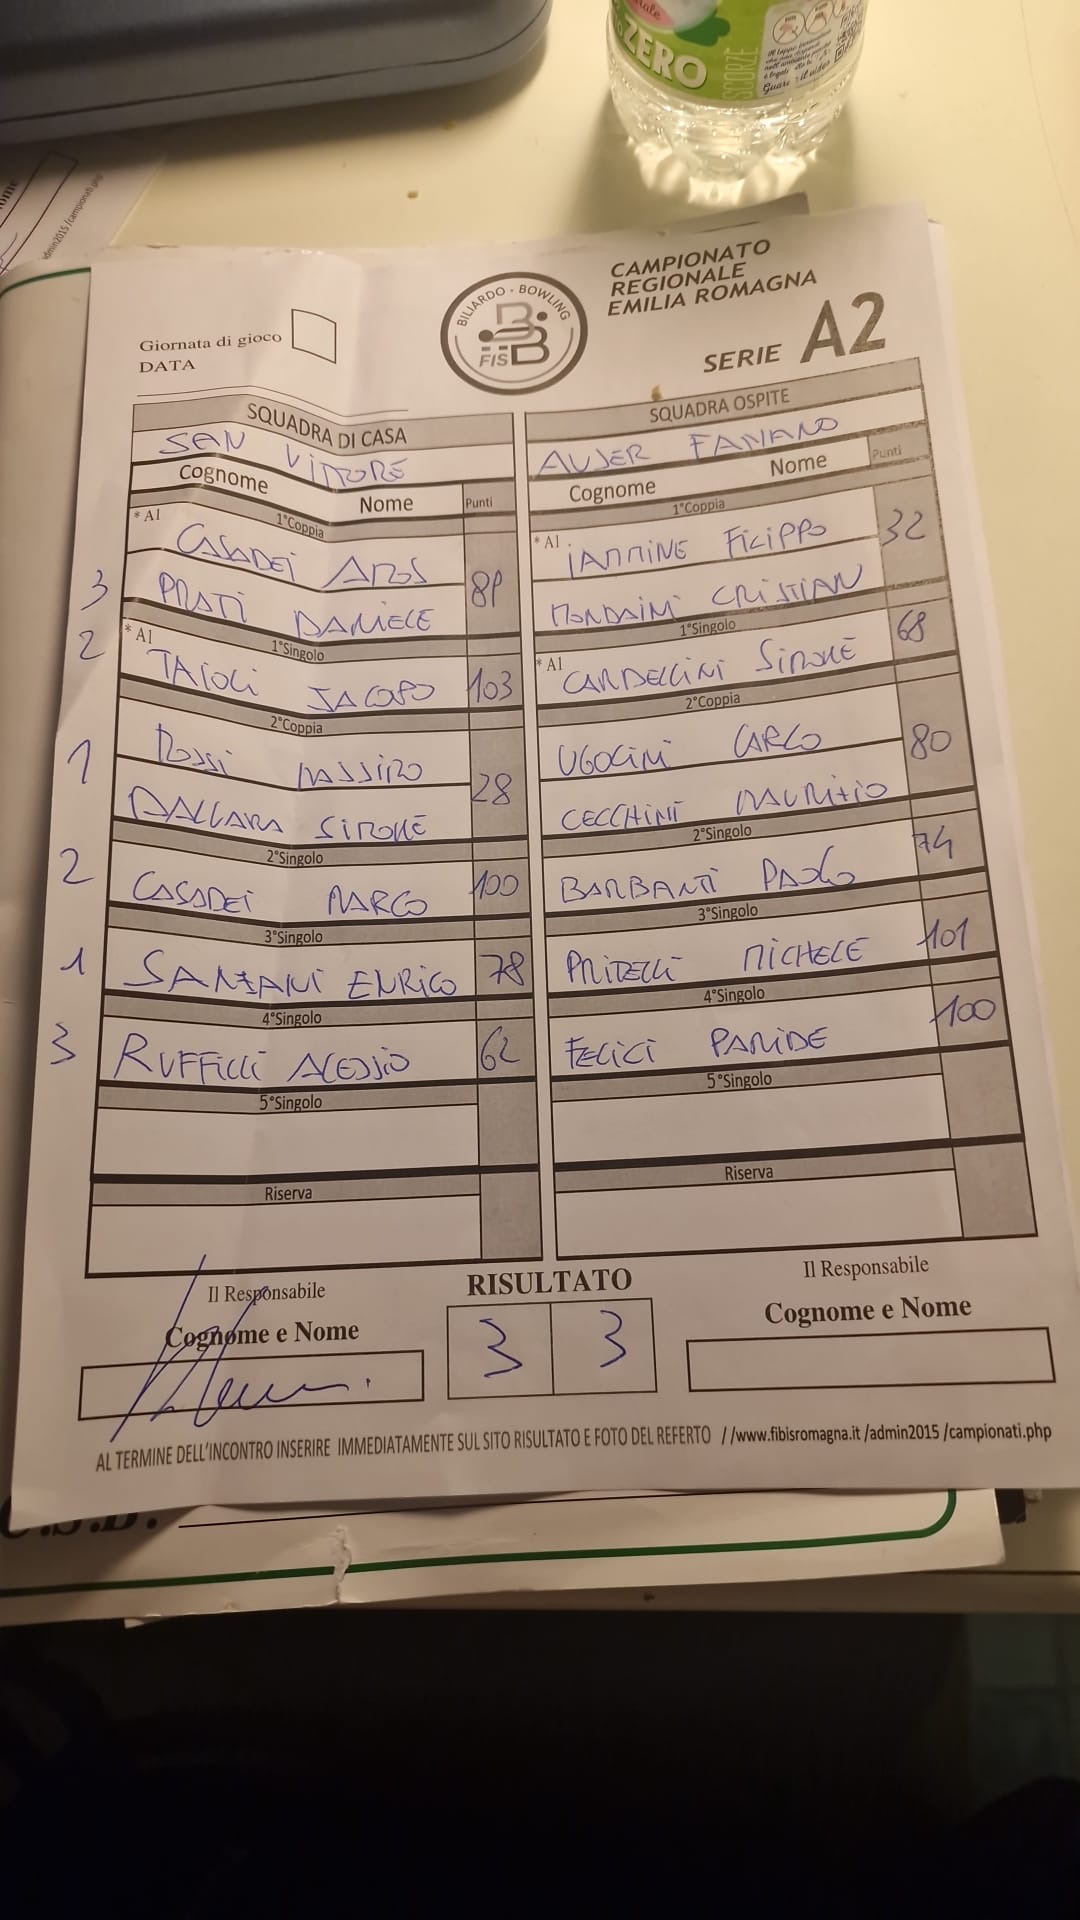 ZERO
SCORZÈ
admin2015 /campionati.php
Giornata di gioco
DATA
BILIARDO - BOWLING
FISBB
CAMPIONATO
REGIONALE
EMILIA ROMAGNA
SERIE A2
SQUADRA DI CASA
SAN VITTORE
Cognome Nome Punti
1°Coppia
* A1
CASADEI AROS
3 PRATI DANIELE 81
1°Singolo
2 * A1
TAIOLI JACOPO 103
2°Coppia
1 ROSSI MASSIMO
DALLARA SIMONE 28
2°Singolo
2 CASADEI MARCO 100
3°Singolo
1 SANZANI ENRICO 78
4°Singolo
3 RUFFILLI ALESSIO 62
5°Singolo
Riserva
SQUADRA OSPITE
AUSER FANANO
Cognome Nome Punti
1°Coppia
* A1
IANNINE FILIPPO 32
MONDAINI CRISTIAN
1°Singolo
* A1
CARDELLINI SIMONE 68
2°Coppia
UGOLINI CARLO
CECCHINI MAURIZIO 80
2°Singolo
BARBANTI PAOLO 74
3°Singolo
PRITELLI MICHELE 101
4°Singolo
FELICI PARIDE 100
5°Singolo
Riserva
Il Responsabile
Cognome e Nome
RISULTATO
3 3
Il Responsabile
Cognome e Nome
AL TERMINE DELL'INCONTRO INSERIRE IMMEDIATAMENTE SUL SITO RISULTATO E FOTO DEL REFERTO //www.fibisromagna.it /admin2015 /campionati.php